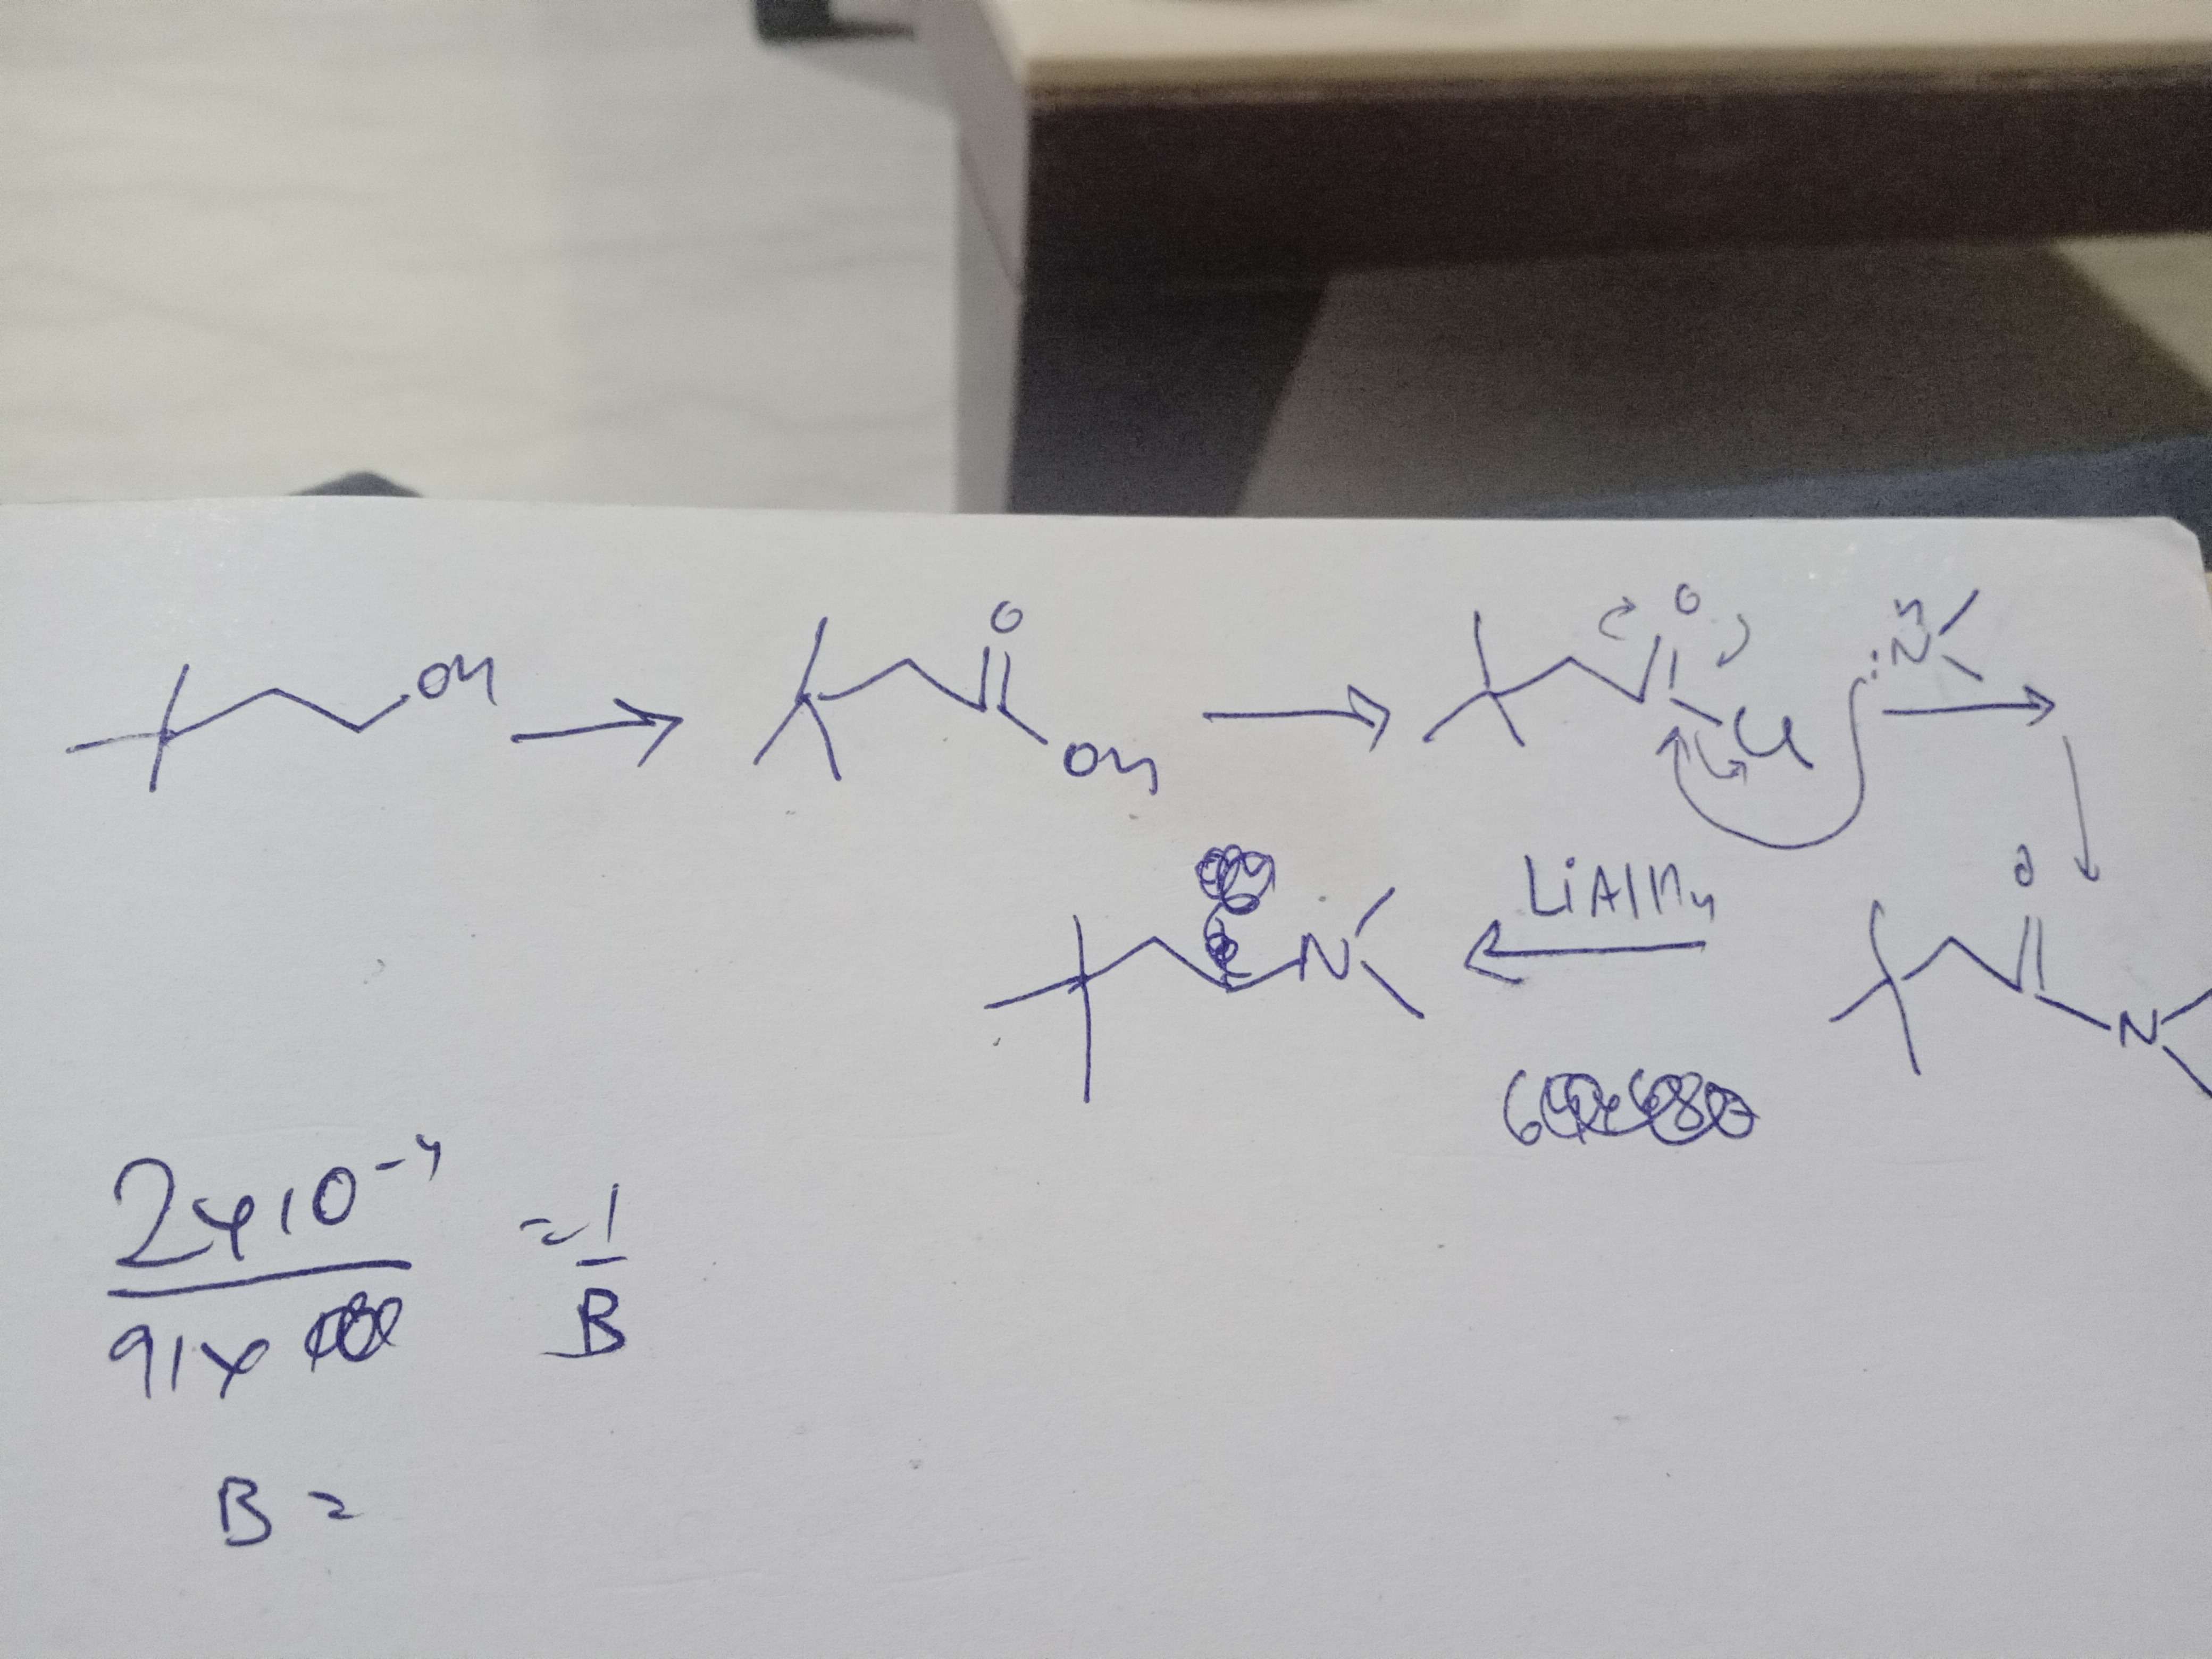 OH
O
OH
O
Cl
:N
H
LiAlH4
N
O
N
2×10-4
91×
= 1
B
B =